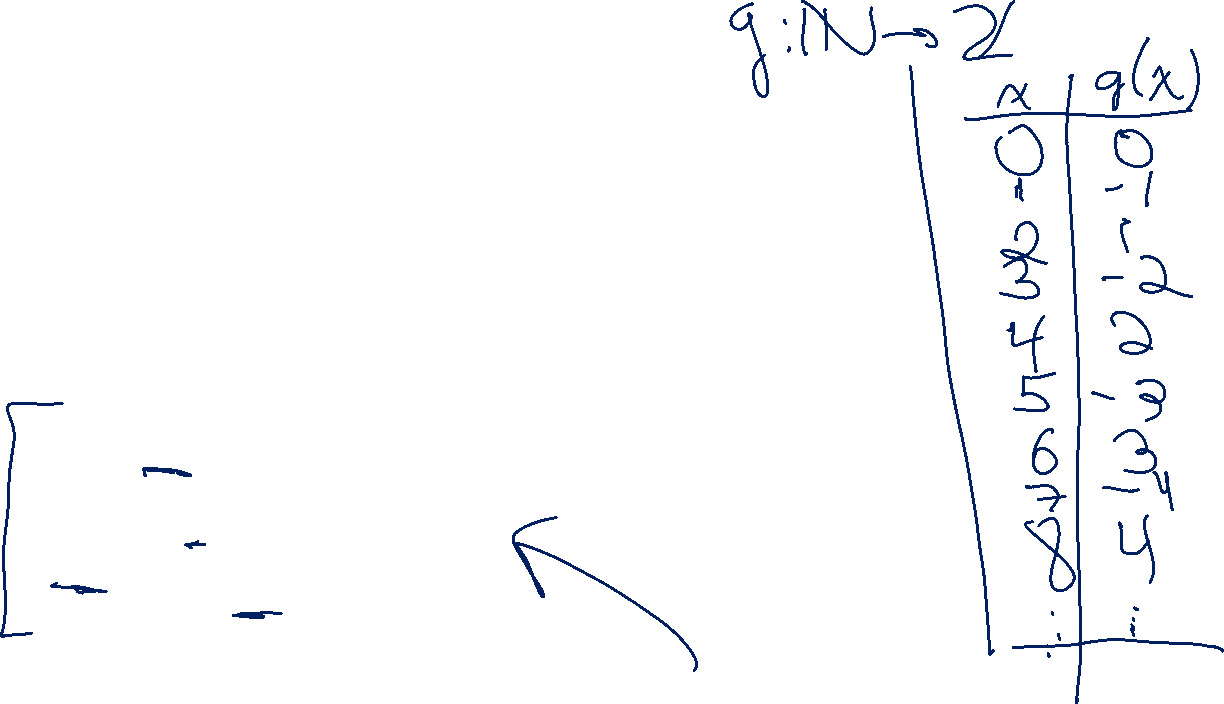 g : ℕ → ℤ
x | g(x)
0 | 0
1 | -1
2 | 1
3 | -2
4 | 2
5 | -3
6 | 3
7 | -4
8 | 4
⋮ | ⋮